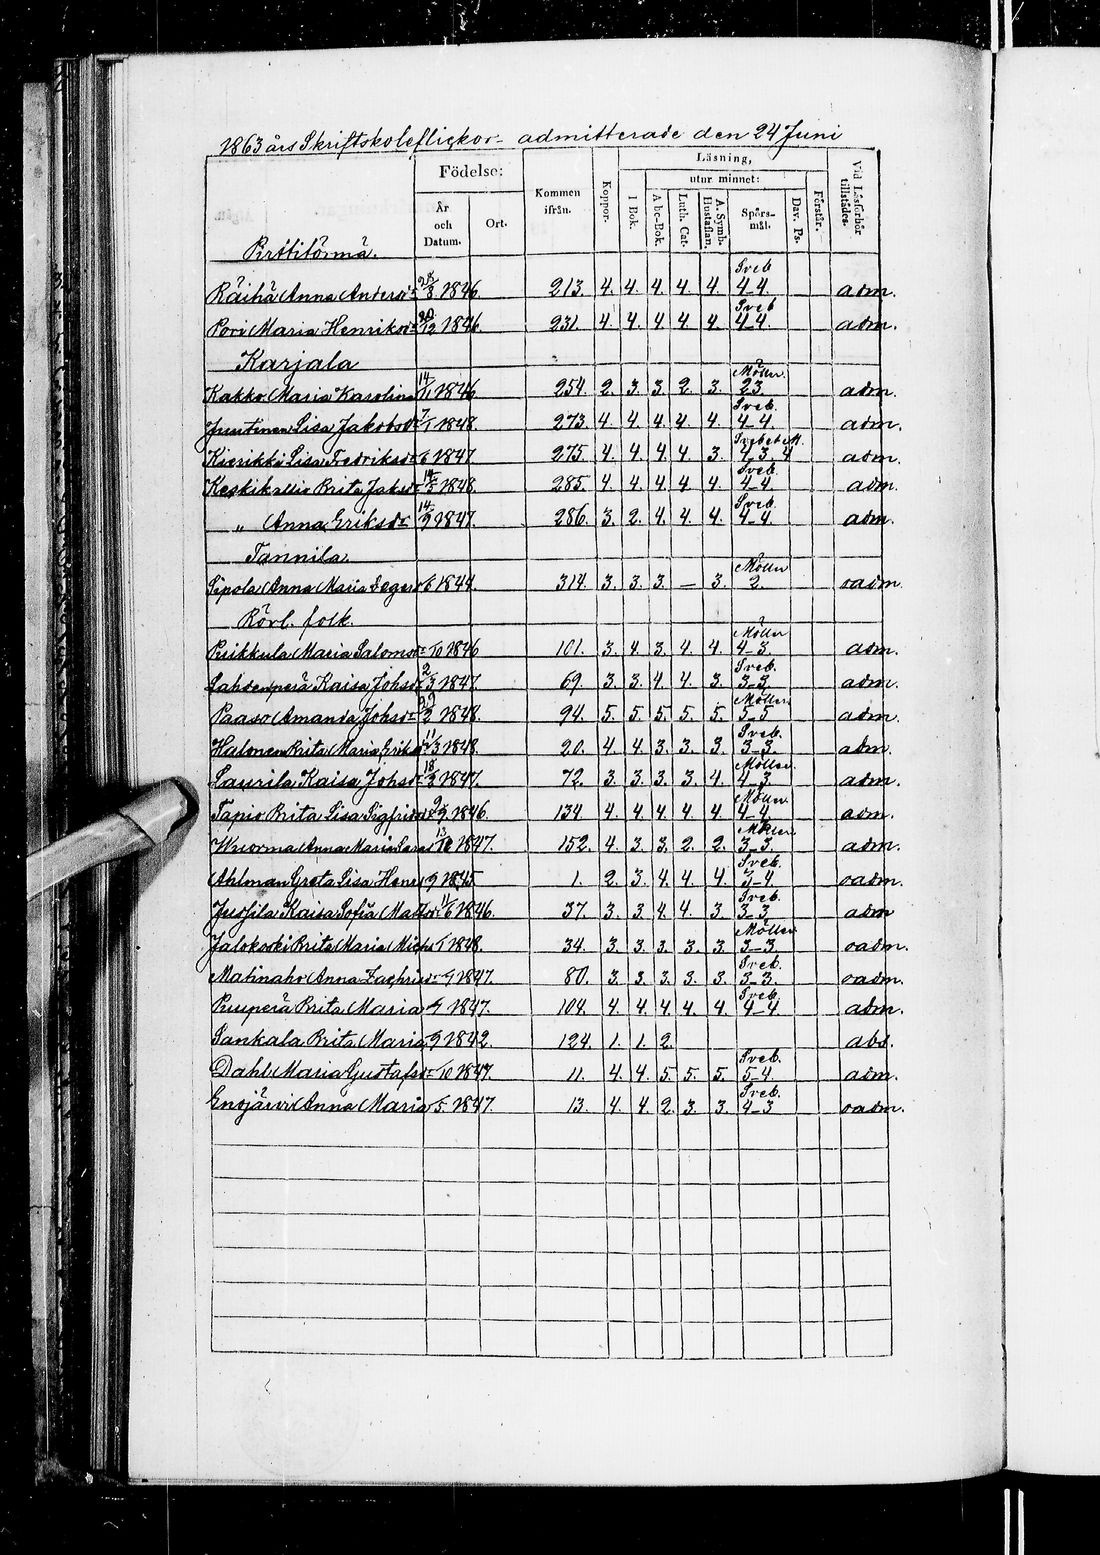 1863 års Skriftskoleflickor admitterade den 24 Juni
Födelse: Läsning,
År och Datum. Ort. Kommen ifrån. Koppor. I Bok. utur minnet: A b c-Bok. Luth. Cat. A. Symb. Hustaflan. Spörs-mål. Dav. Ps. Förstår. Vid Läsförhör tillstädes.
Sveb
Räihä Anna Andersdr 8 1846. 213. 4. 4. 4. 4. 4. 4-4. adm.
Sveb
Pori Maria Henriksdr 20/12 1846. 231. 4. 4. 4. 4. 4. 4-4. adm.
Karjala
Möller
Kakko Maria Karolina 14/11 1846. 254. 2. 3. 3. 2. 3. 23. adm.
Sveb.
Juutinen Lisa Jakobsdr 7/1 1848. 273. 4. 4. 4. 4. 4. 4-4. adm.
Kierikki Lisa Fredriksdr 6 1847 275 4. 4. 4. 4. 3. 4 3 4 adm.
Sveb.
Keskikallio Brita Jaksdr 14/3 1848. 285. 4. 4. 4. 4. 4. 4-4 adm.
Sveb.
„ Anna Eriksdr 14/9 1847. 286. 3. 2. 4. 4. 4. 4-4. adm.
Tannila
Möller
Sipola Anna Maria 6 1844. 314. 3. 3. 3. — 3. 2. oadm.
Rörl. folk.
Möller
Pirikkula Maria Salomdr 10 1846 101. 3. 4. 3. 4. 4. 4-3. adm.
Sveb.
Lahdenperä Kaisa Johsdr 2/3 1847. 69. 3. 3. 4. 4. 3. 3-3 adm.
Möller
Paaso Amanda Johsdr 2 1848. 94. 5. 5. 5. 5. 5. 5-5 adm.
Sveb.
Halonen Brita Maria Eriks 11/3 1848. 20. 4. 4. 3. 3. 3. 3-3. adm.
Möller
Laurila Kaisa Johsdr 18/3 1847. 72. 3. 3. 3. 3. 4. 4-3 adm.
Möller
Tapio Brita Lisa Sigfridsdr 9 1846. 134 4. 4. 4. 4. 4. 4-4. adm.
Möller
Wuorma Anna Maria 13/10 1847. 152. 4. 3. 3. 2. 2. 3-3. adm.
Sveb.
Ahlman Greta Lisa Henr 9 1845 1. 2. 3. 4. 4. 4. 3-4 oadm.
Sveb.
Jussila Kaisa Sofia 11/6 1846. 37. 3. 3. 4. 4. 3 3-3 adm
Möller
Jalokoski Brita Maria 1 1848. 34. 3. 3. 3. 3. 3. 3-3 oadm.
Sveb.
Matinaho Anna 9 1847. 80. 3. 3. 3. 3. 3. 3-3. oadm.
Sveb.
Puuperä Brita Maria 4 1847. 104. 4. 4. 4. 4. 4. 4-4 adm.
Sankala Brita Maria 9 1842. 124. 1. 1. 2. abs.
Sveb.
Dahl Maria Gustafsdr 10 1847. 11. 4. 4. 5. 5. 5. 5-4. adm.
Sveb.
Ensjärvi Anna Maria 5. 1847. 13. 4. 4. 2. 3. 3. 4-3 oadm.